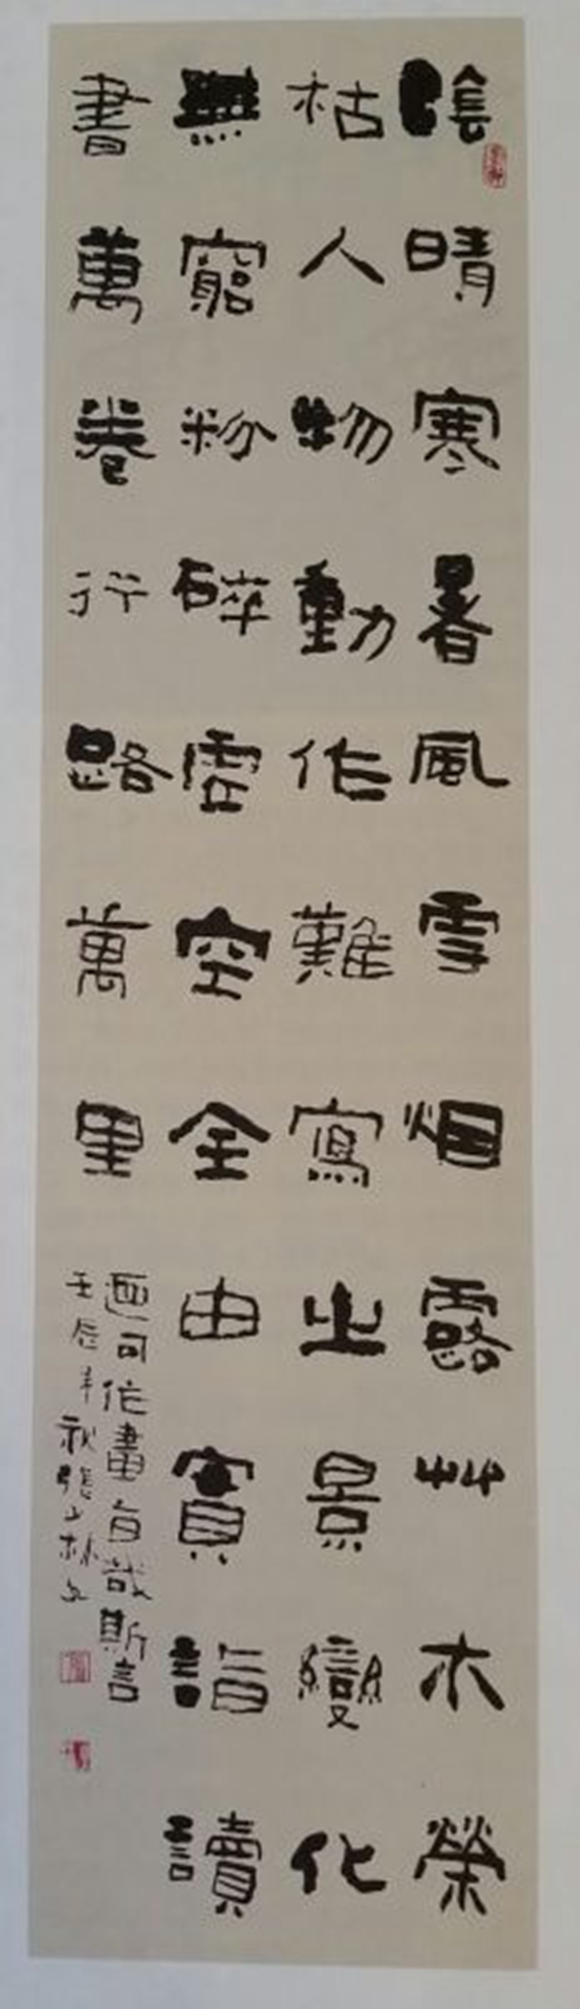 陰晴寒暑風雪烟露艸木榮
枯人物動作難寫之景變化
無窮粉碎虛空全由實詣讀
書萬卷行路萬里
迺可作畫旨哉斯言
壬辰年秋張